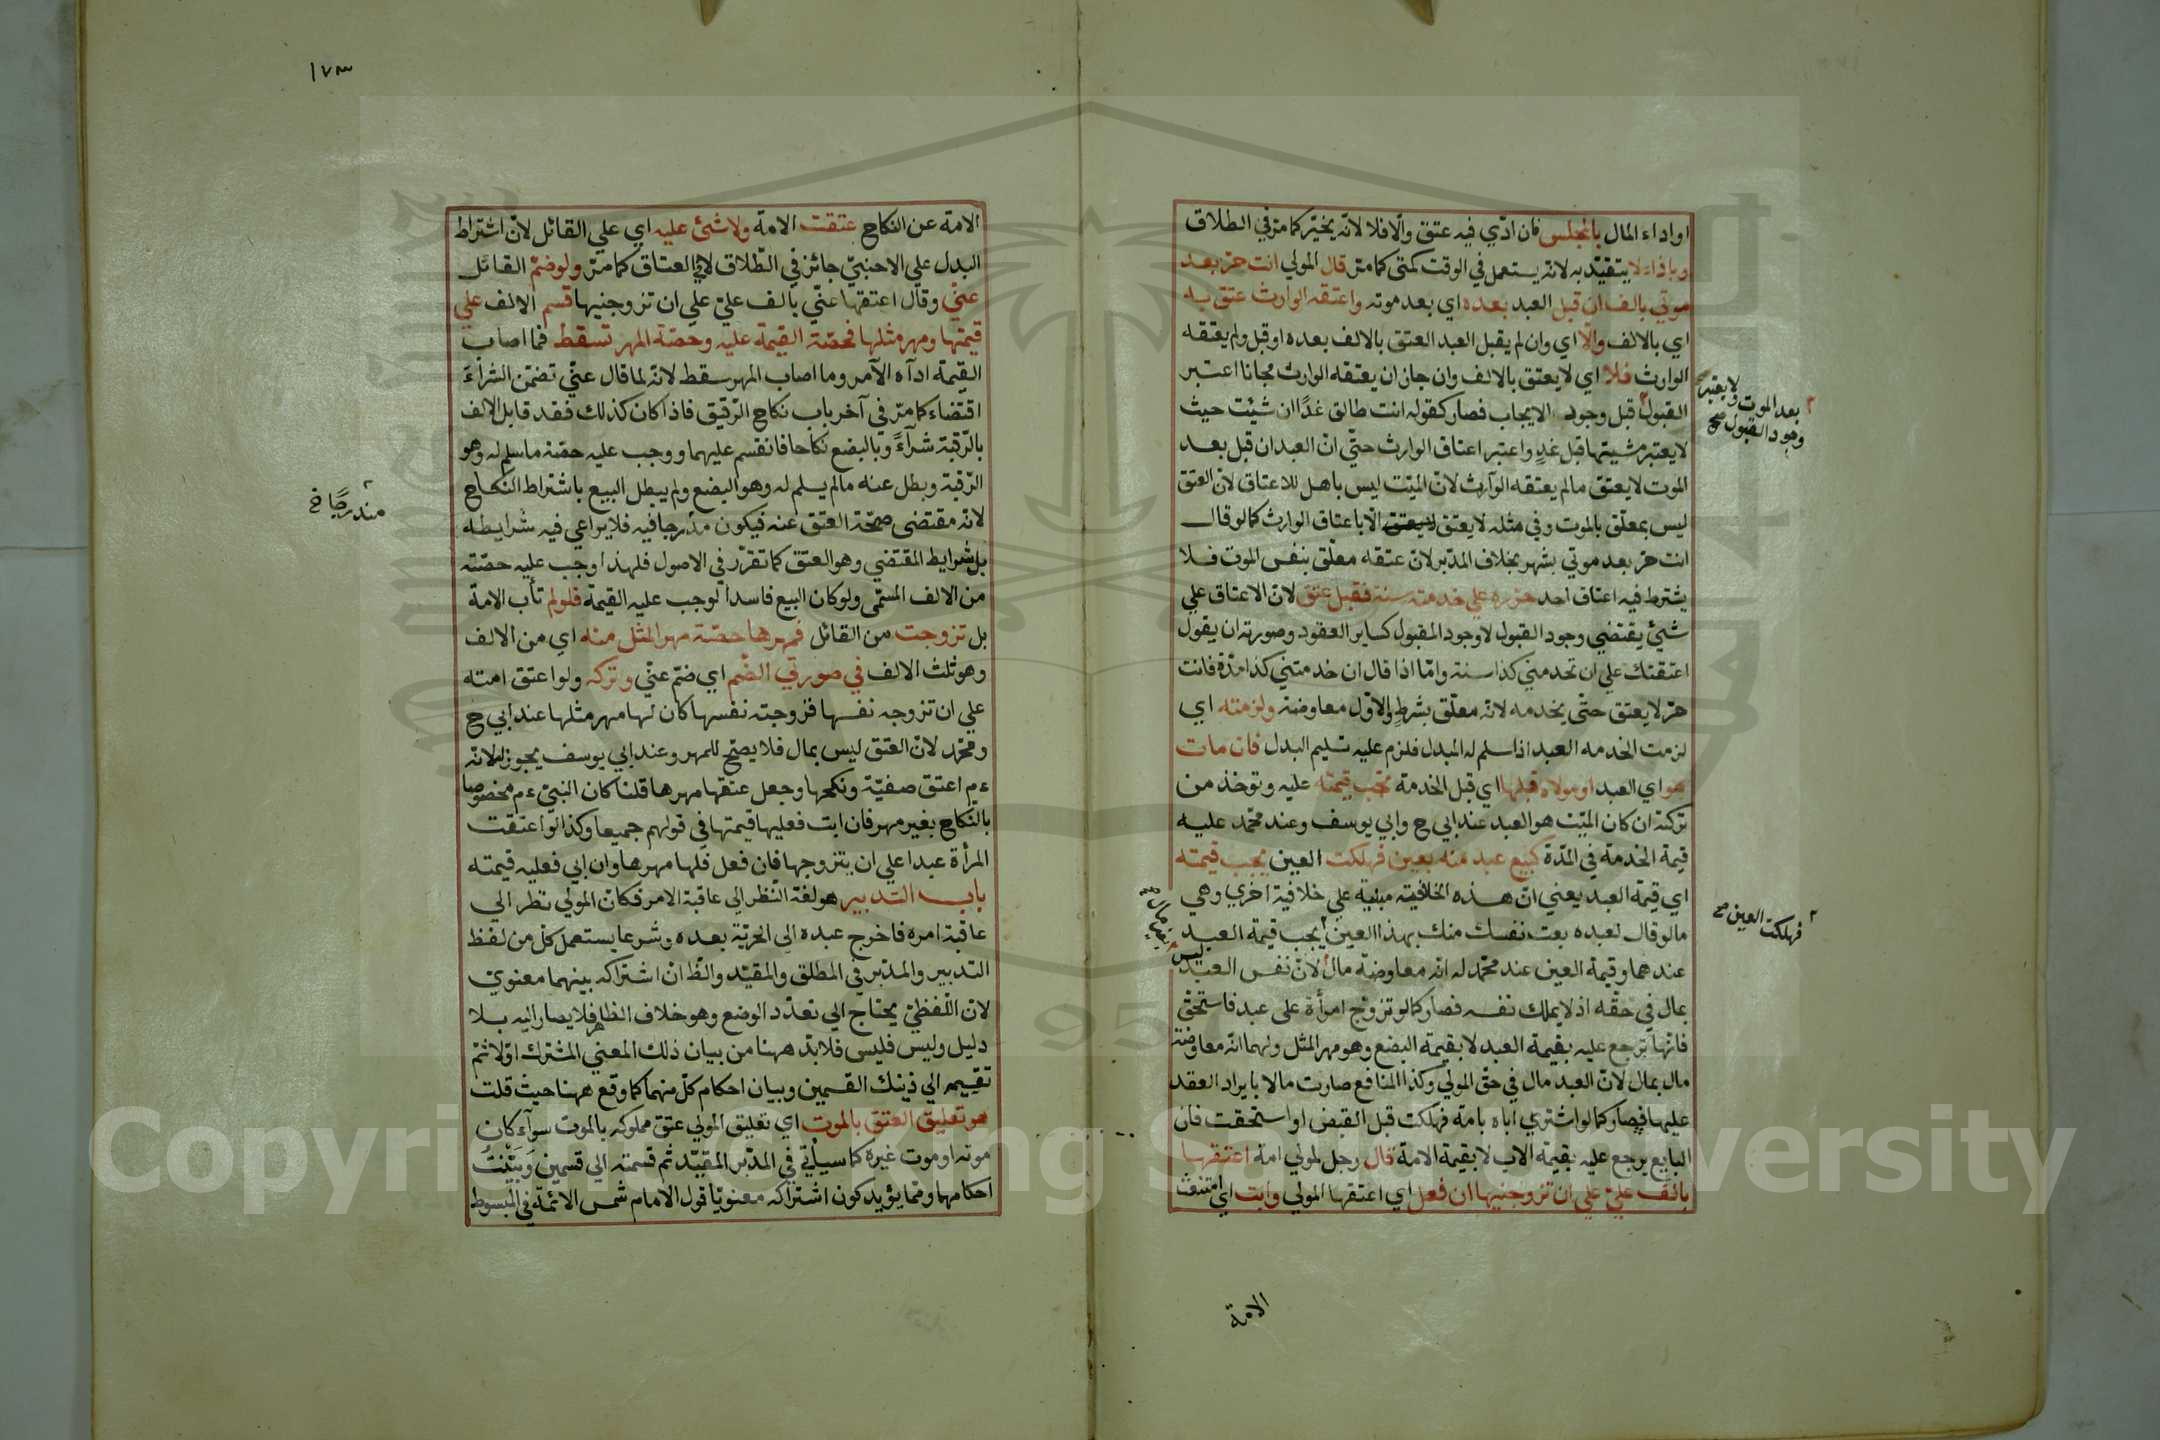 او اداء المال بالمجلس فان ادّي فيه عتق والّا فلا لانّه يخيّر كما مرّ في الطلاق
وباذا لا يتقيّد به لانّه يستعمل في الوقت كمتي كما مرّ قال المولي انت حرّ بعد
موتي بالف ان قبل العبد بعده اي بعد موته واعتقه الوارث عتق به
اي بالالف والّا اي وان لم يقبل العبد العتق بالالف بعده او قبل ولم يعتقه
الوارث فلا اي لا يعتق بالالف وان جاز ان يعتقه الوارث مجانا اعتبر
القبول قبل وجود الايجاب فصار كقوله انت طالق غدًا ان شئت حيث
بعد الموت ولا يعتبر
وجود القبول صح
لا يعتبر مشيتها قبل غدٍ واعتبر اعتاق الوارث حتّي انّ العبد ان قبل بعد
الموت لا يعتق ما لم يعتقه الوارث لانّ الميّت ليس باهل للاعتاق لانّ العتق
ليس بمعلّق بالموت وفي مثله لا يعتق الّا باعتاق الوارث كما لو قال
انت حرّ بعد موتي بشهر بخلاف المدبّر لانّ عتقه معلّق بنفس الموت فلا
يشترط فيه اعتاق احد حرّره علي خدمته سنة فقبل عتق لانّ الاعتاق علي
شيئ يقتضي وجود القبول لا وجود المقبول كساير العقود وصورته ان يقول
اعتقتك علي ان تخدمني كذا سنة وامّا اذا قال ان خدمتني كذا مدّة فانت
حرّ لا يعتق حتّي يخدمه لانّه معلّق بشرطٍ والاوّل معاوضة ولزمته اي
لزمت الخدمة العبد اذا سلم له المبدل فلزم عليه تسليم البدل فان مات
هو اي العبد او مولاه قبلها اي قبل الخدمة تجب قيمته عليه وتوخذ من
تركته ان كان الميّت هو العبد عند ابي ح وابي يوسف وعند محمّد عليه
قيمة الخدمة في المدّة كبيع عبد منه بعين فهلكت العين يجب قيمته
اي قيمة العبد يعني انّ هذه الخلافيّة مبنية علي خلافية اخري وهي
ما لو قال لعبده بعت نفسك منك بهذا العين يجب قيمة العبد
فهلكت العين صح
عندهما وقيمة العين عند محمّد له انّه معاوضة مال لانّ نفس العبد
ليس
بمال في حقّه اذ لا يملك نفسه فصار كما لو تزوّج امرأة علي عبد فاستحقّ
فانّها ترجع عليه بقيمة العبد لا بقيمة البضع وهو مهر المثل ولهما انّه معاوضة
مال بمال لانّ العبد مال في حقّ المولي وكذا المنافع صارت مالا بايراد العقد
عليها فصار كما لو اشتري اباه بامة فهلكت قبل القبض او استحقت فان
البايع يرجع عليه بقيمة الاب لا بقيمة الامة قال رجل لمولي امة اعتقها
بالف عليّ علي ان تزوجنيها ان فعل اي اعتقها المولي وابت اي امتنعت
الامة
١٧٣
الامة عن النكاح عتقت الامة ولا شئ عليه اي علي القائل لانّ اشتراط
البدل علي الاجنبيّ جائز في الطّلاق لا في العتاق كما مرّ ولو ضمّ القائل
عنّي وقال اعتقها عنّي بالف عليّ علي ان تزوجنيها قسم الالف علي
قيمتها ومهر مثلها فحصّة القيمة عليه وحصّة المهر تسقط فما اصاب
القيمة اداه الآمر وما اصاب المهر سقط لانّه لما قال عنّي تضمّن الشراء
اقتضاء كما مرّ في آخر باب نكاح الرّقيق فاذا كان كذلك فقد قابل الالف
بالرّقبة شراءً وبالبضع نكاحا فانقسم عليهما ووجب عليه حصّة ما سلم له وهو
الرّقبة وبطل عنه ما لم يسلم له وهو البضع ولم يبطل البيع باشتراط النكاح
لانّه مقتضي صحّة العتق عنه فيكون مدرجا فيه فلا يراعي فيه شرايطه
مندرجًا خ
بل شرايط المقتضي وهو العتق كما تقرّر في الاصول فلهذا وجب عليه حصّته
من الالف المسمّي ولو كان البيع فاسدا لوجب عليه القيمة فلو لم تأب الامة
بل تزوجت من القائل فمهرها حصّة مهر المثل منه اي من الالف
وهو ثلث الالف في صورتي الضّم اي ضمّ عنّي وتركه ولو اعتق امته
علي ان تزوجه نفسها فزوجته نفسها كان لها مهر مثلها عند ابي ح
ومحمّد لانّ العتق ليس بمال فلا يصحّ للمهر وعند ابي يوسف يجوز لانّه
ءم اعتق صفيّة ونكحها وجعل عتقها مهرها قلنا كان النبيّ ءم مخصوصا
بالنّكاح بغير مهر فان ابت فعليها قيمتها في قولهم جميعا وكذا لو اعتقت
المرأة عبدا علي ان يتزوجها فان فعل فلها مهرها وان ابي فعليه قيمته
باب التدبير هو لغة النّظر الي عاقبة الامر فكانّ المولي نظر الي
عاقبة امره فاخرج عبده الي الحريّة بعده وشرعا يستعمل كلّ من لفظ
التدبير والمدبّر في المطلق والمقيّد والظّ انّ اشتراكه بينهما معنويّ
لانّ اللّفظيّ يحتاج الي تعدّد الوضع وهو خلاف الظاهر فلا يصار اليه بلا
دليل وليس فليس فلا بدّ ههنا من بيان ذلك المعني المشترك اوّلا ثمّ
تقسيمه الي ذينك القسمين وبيان احكام كلّ منهما كما وقع ههنا حيث قلت
هو تعليق العتق بالموت اي تعليق المولي عتق مملوكه بالموت سواء كان
موته او موت غيره كما سيأتي في المدبّر المقيّد ثمّ قسمته الي قسمين وبيّنتُ
احكامها وممّا يؤيد كون اشتراكه معنويّا قول الامام شمس الائمّة في المبسوط